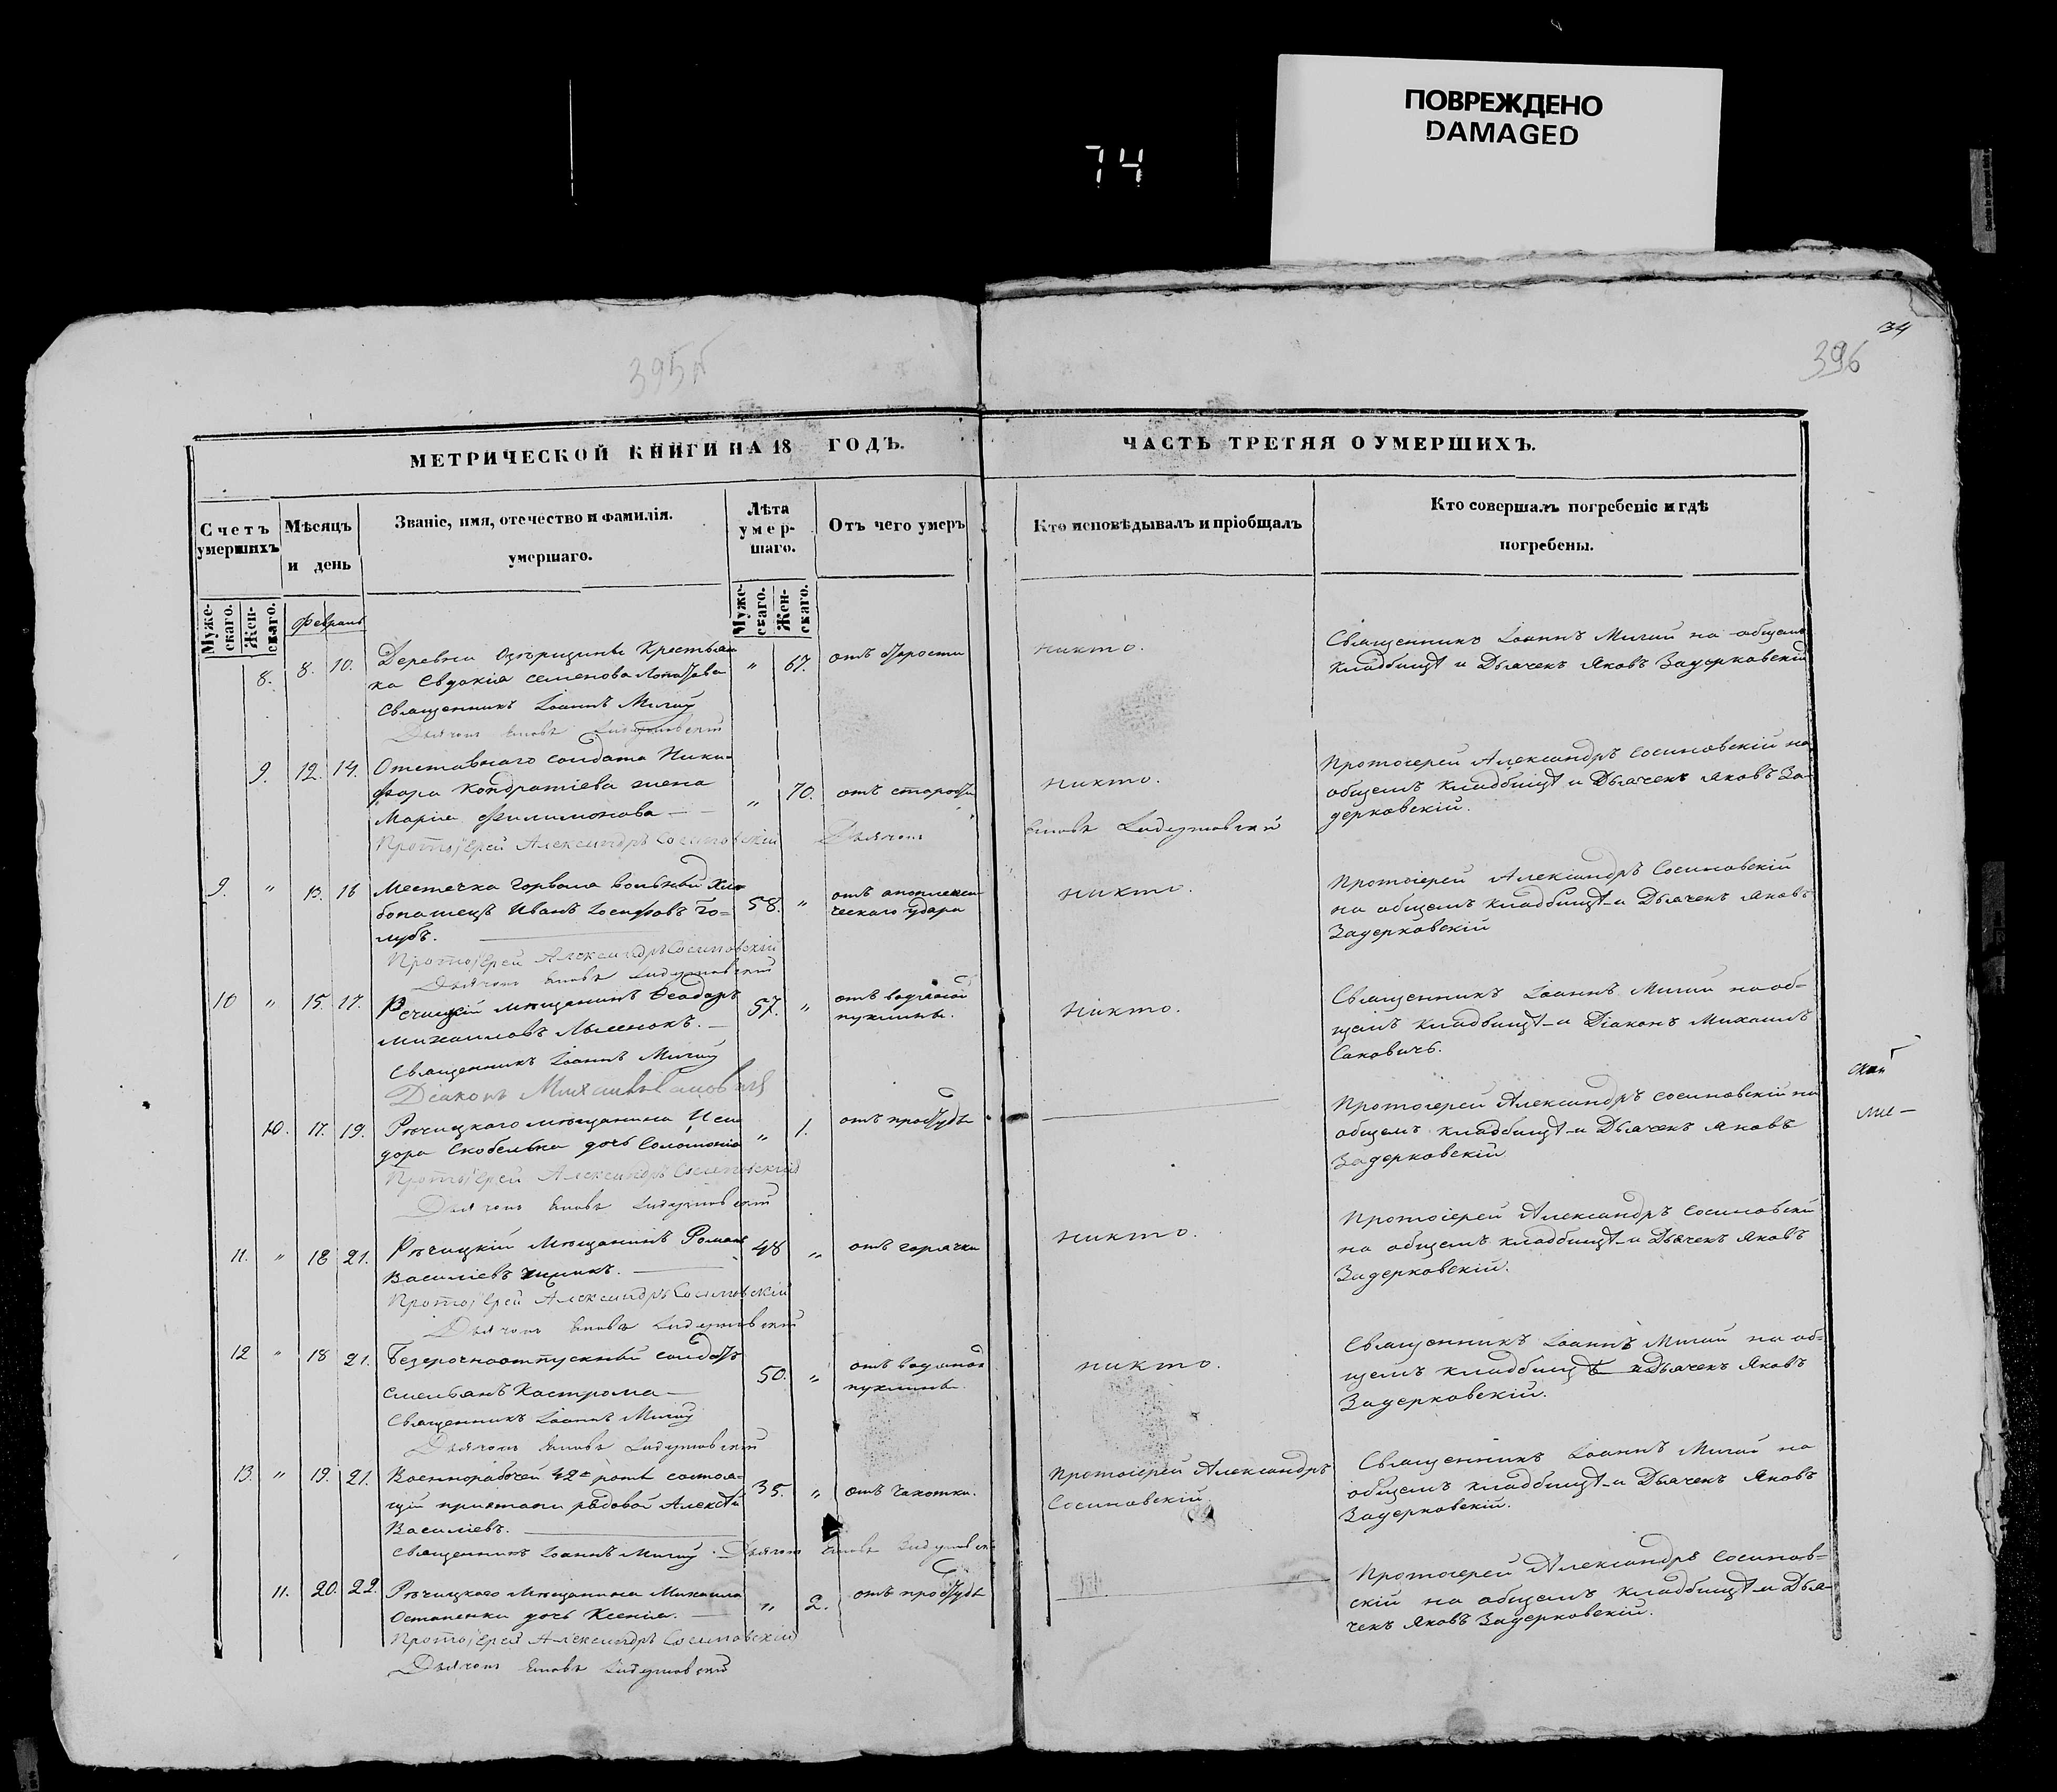 ПОВРЕЖДЕНО
DAMAGED
74
34
396
МЕТРИЧЕСКОЙ КНИГИ НА 18 ГОДЪ.
ЧАСТЬ ТРЕТЯЯ О УМЕРШИХЪ.
Счетъ умершихъ
Мужескаго.
Женскаго.
Мѣсяцъ и день
Званіе, имя, отечество и фамилія.
умершаго.
Лѣта умершаго.
Мужескаго.
Женскаго.
Отъ чего умеръ
Кто исповѣдывалъ и пріобщалъ
Кто совершалъ погребеніе и гдѣ
погребены.
8. 8. 10.
Деревни Крестьян
ка Евдокія Семенова
Священникъ Іоаннъ Мигай
" 67. отъ старости
никто.
Священникъ Іоаннъ Мигай на общемъ
кладбищѣ и Дьячекъ Яковъ Задерковскій
9. 12. 14.
Отставнаго солдата Ники-
фора Кондратіева жена
Марія Филимонова
Протоіерей Александръ Сосиновскій
" 70. отъ старости
никто.
Протоіерей Александръ Сосиновскій на
общемъ кладбищѣ и Дьячекъ Яковъ За-
дерковскій.
9. " 13. 16
Местечка Горваля вольный хлѣ
бопашецъ Иванъ Іосифовъ Го=
лубъ.
Протоіерей Александръ Сосиновскій
58. " отъ апоплекси
ческаго удара
никто.
Протоіерей Александръ Сосиновскій
на общемъ кладбищѣ и Дьячекъ Яковъ
Задерковскій
10 " 15. 17.
Речицкій мѣщанинъ Ѳеодоръ
Михаиловъ
Священникъ Іоаннъ Мигай
Діаконъ Михаилъ Саковичъ
57. " отъ водяной
пухлины.
никто.
Священникъ Іоаннъ Мигай на об=
щемъ кладбищѣ и Діаконъ Михаилъ
Саковичъ.
10. 17. 19.
Рѣчицкаго мѣщанина Иси
дора дочь Соломонія
Протоіерей Александръ Сосиновскій
" 1. отъ простуды
Протоіерей Александръ Сосиновскій на
общемъ кладбищѣ и Дьячекъ Яковъ
Задерковскій
11. " 18 21.
Рѣчицкій мѣщанинъ Романъ
Василіевъ
Протоіерей Александръ Сосиновскій
48 " отъ горячки
никто.
Протоіерей Александръ Сосиновскій
на общемъ кладбищѣ и Дьячекъ Яковъ
Задерковскій.
12 " 18 21.
Безсрочноотпускный солдатъ
Емельянъ Кострома
Священникъ Іоаннъ Мигай
50. " отъ водяной
пухлины.
никто.
Священникъ Іоаннъ Мигай на об=
щемъ кладбищѣ и Дьячекъ Яковъ
Задерковскій.
13. " 19. 21.
Военнорабочей 42й роты состоя=
щій рядовой Алексѣй
Василіевъ.
Священникъ Іоаннъ Мигай
35. " отъ чахотки.
Протоіерей Александръ
Сосиновскій.
Священникъ Іоаннъ Мигай на
общемъ кладбищѣ и Дьячекъ Яковъ
Задерковскій.
11. 20. 22.
Рѣчицкаго мѣщанина Михаила
Остапенки дочь Ксенія.
Протоіерей Александръ Сосиновскій
" 2. отъ простуды
Протоіерей Александръ Сосинов=
скій на общемъ кладбищѣ и Дья=
чекъ Яковъ Задерковскій.